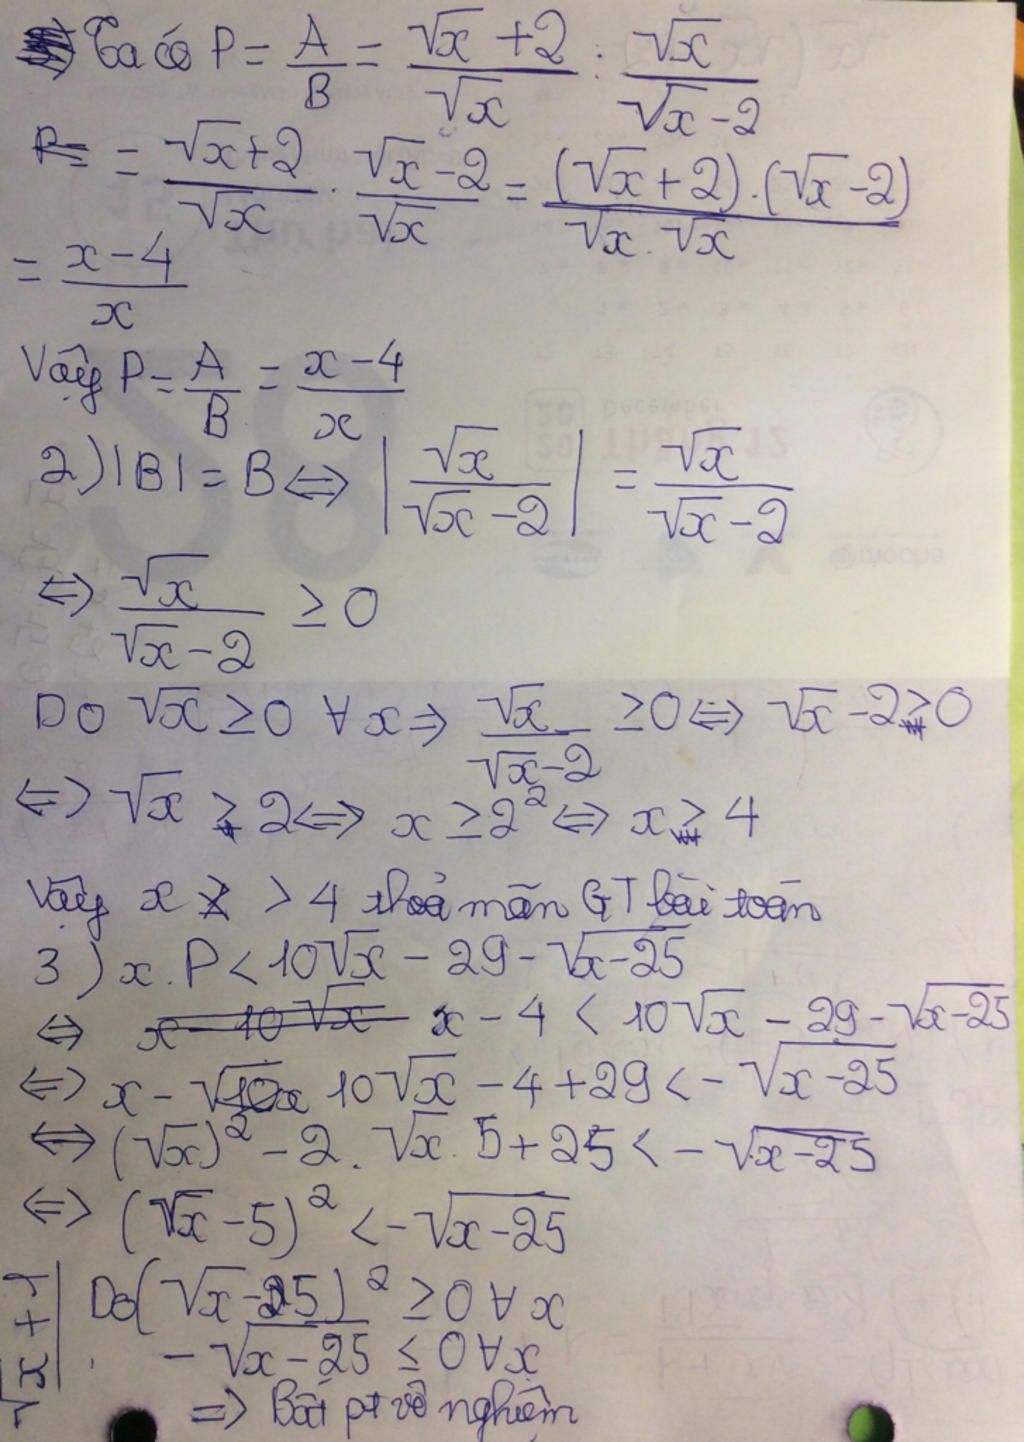 Ta có P = A/B = (√x + 2)/√x : √x/(√x - 2)
= (√x + 2)/√x . (√x - 2)/√x = ((√x + 2).(√x - 2))/(√x.√x)
= (x - 4)/x
Vậy P = A/B = (x - 4)/x
2) |B| = B ⇔ |√x/(√x - 2)| = √x/(√x - 2)
⇔ √x/(√x - 2) ≥ 0
Do √x ≥ 0 ∀x ⇒ √x/(√x - 2) ≥ 0 ⇔ √x - 2 ≥ 0
⇔ √x ≥ 2 ⇔ x ≥ 2² ⇔ x ≥ 4
Vậy x > 4 thoả mãn GT bài toán
3) x.P < 10√x - 29 - √(x-25)
⇔ x - 4 < 10√x - 29 - √(x-25)
⇔ x - 10√x - 4 + 29 < - √(x-25)
⇔ (√x)² - 2.√x.5 + 25 < - √(x-25)
⇔ (√x - 5)² < - √(x-25)
Do (√x - 5)² ≥ 0 ∀x
- √(x-25) ≤ 0 ∀x
⇒ Bất pt vô nghiệm
December
Tháng 12
mocha